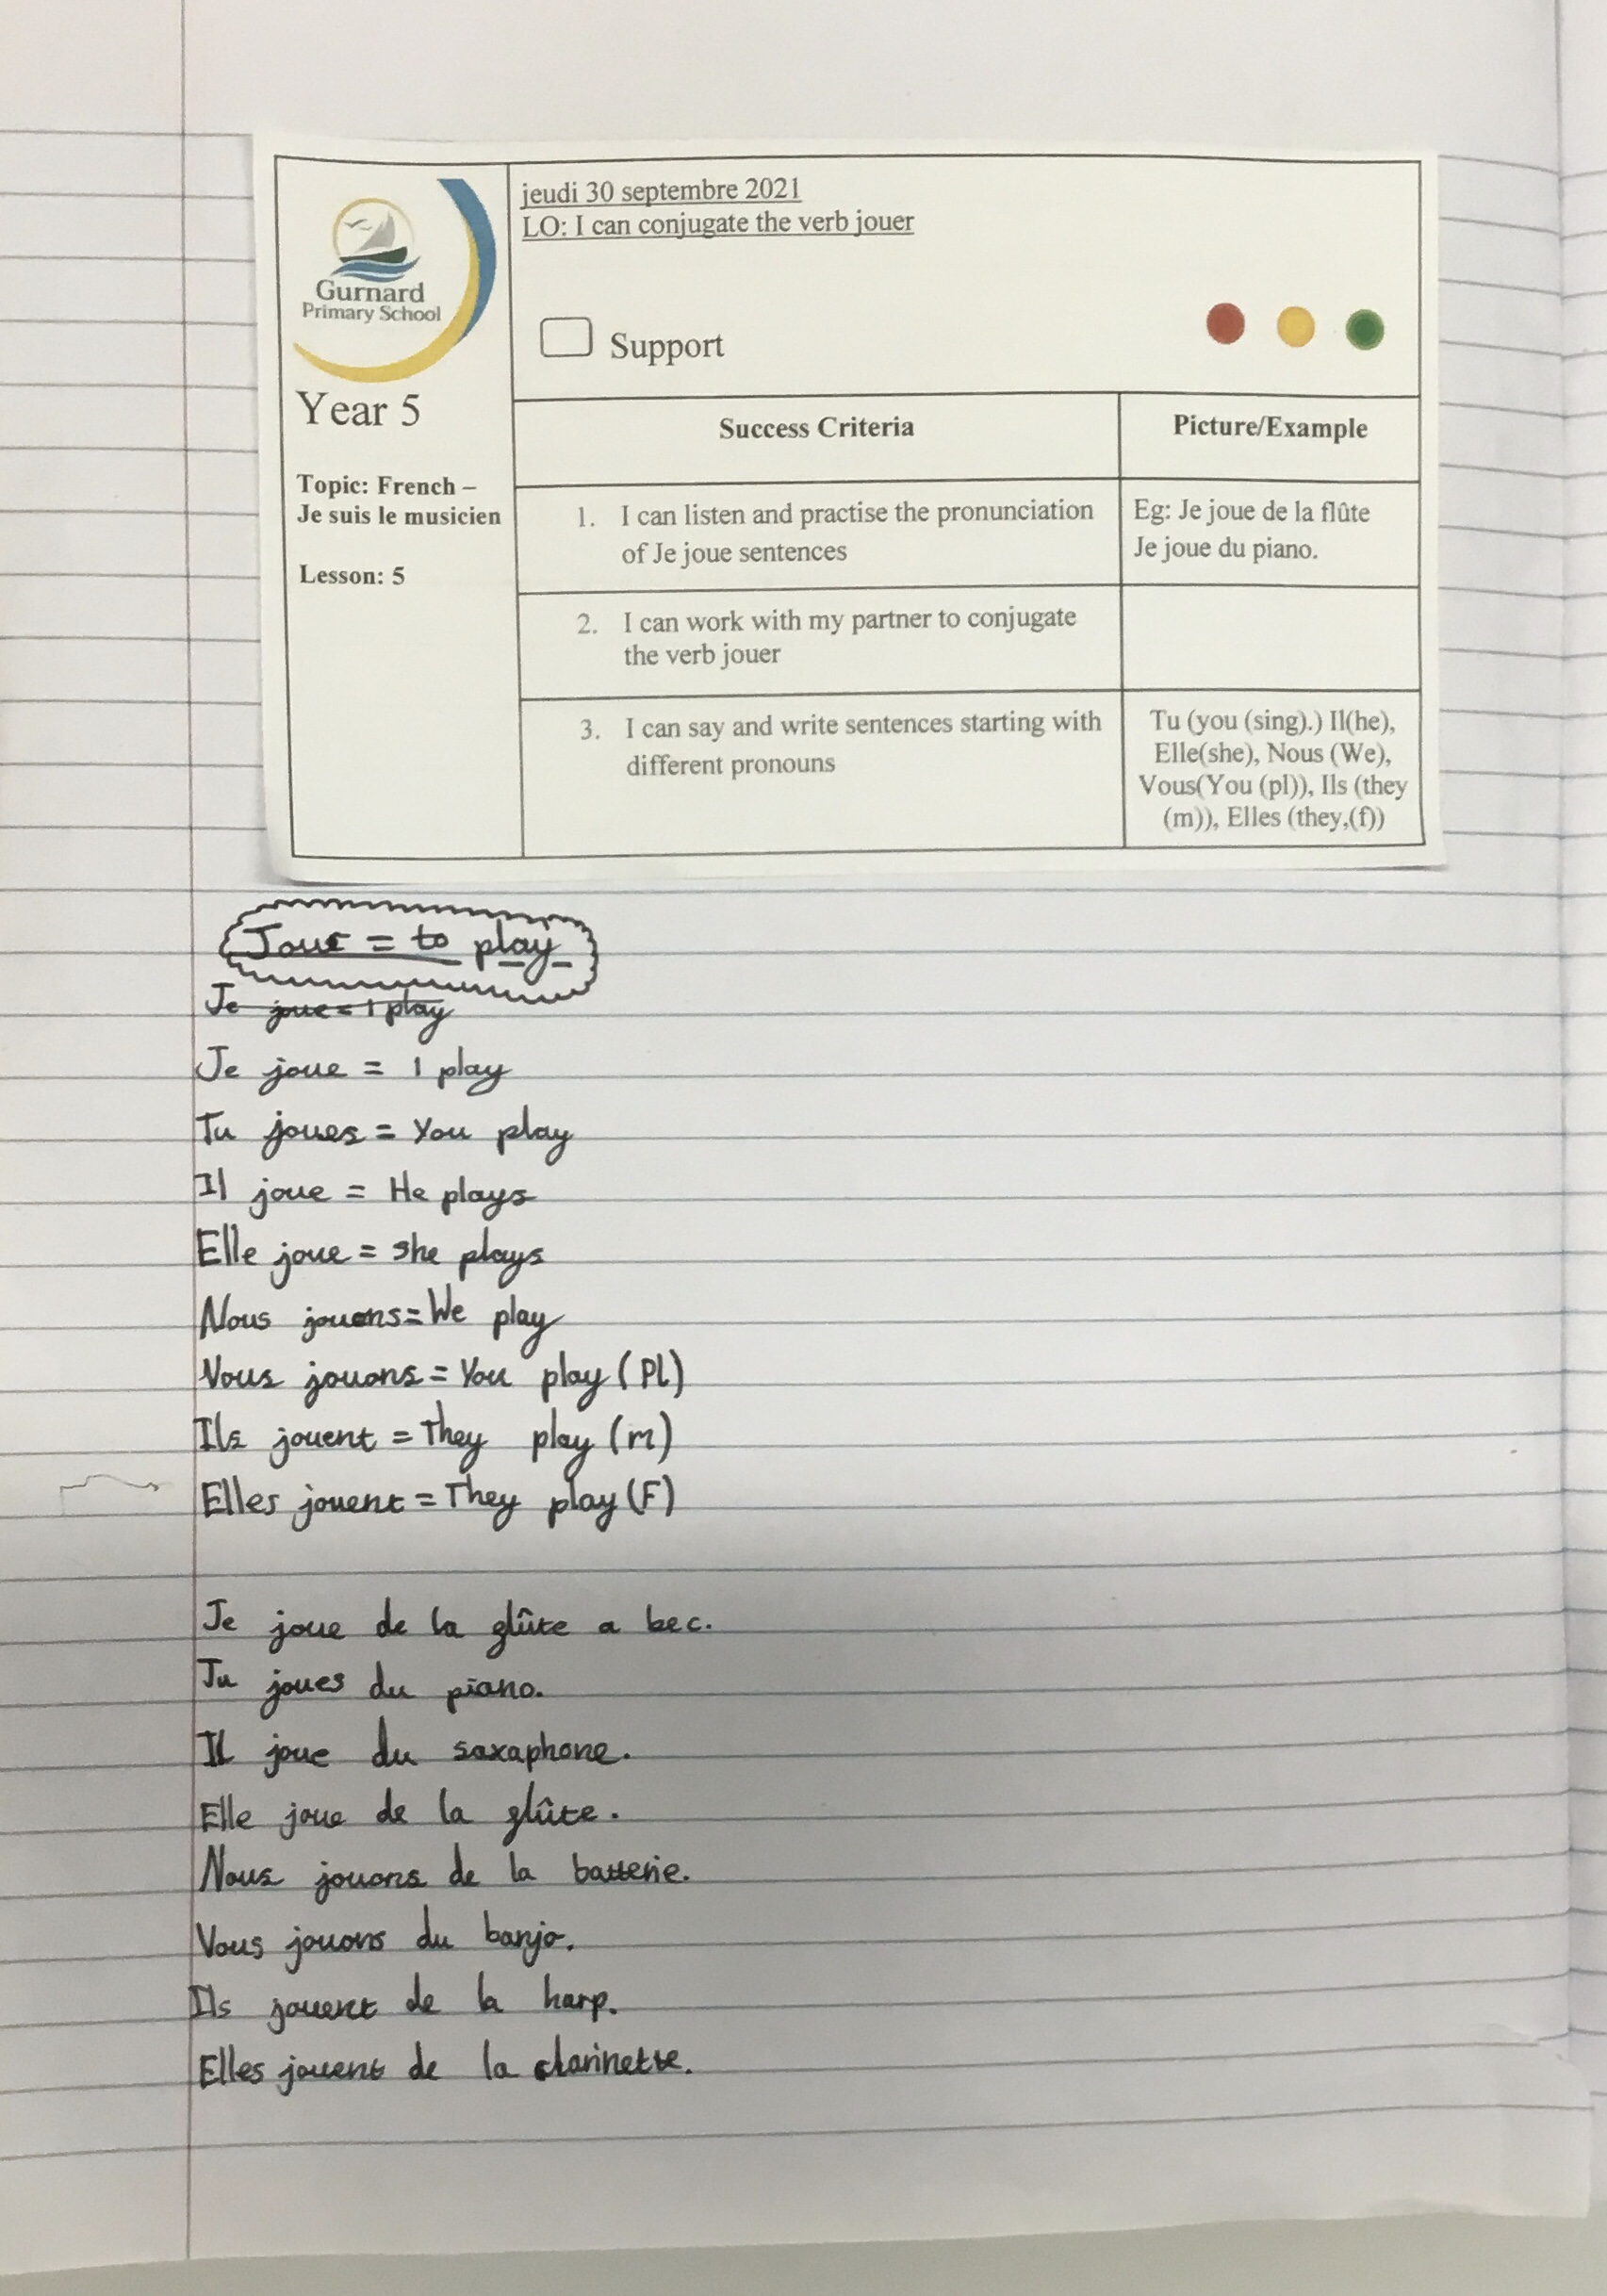 Gurnard
Primary School
Year 5
Topic: French –
Je suis le musicien
Lesson: 5
jeudi 30 septembre 2021
LO: I can conjugate the verb jouer
Support
Success Criteria
Picture/Example
1. I can listen and practise the pronunciation
of Je joue sentences
Eg: Je joue de la flûte
Je joue du piano.
2. I can work with my partner to conjugate
the verb jouer
3. I can say and write sentences starting with
different pronouns
Tu (you (sing).) Il(he),
Elle(she), Nous (We),
Vous(You (pl)), Ils (they
(m)), Elles (they,(f))
= to play
Je joue = I play
Je joue = I play
Tu joues = You play
Il joue = He plays
Elle joue = she plays
Nous jouons = We play
Vous jouons = You play (Pl)
Ils jouent = They play (m)
Elles jouent = They play (F)
Je joue de la glûte a bec.
Tu joues du piano.
Il joue du saxaphone.
Elle joue de la glûte.
Nous jouons de la batterie.
Vous jouons du banjo.
Ils jouent de la harp.
Elles jouent de la clarinette.